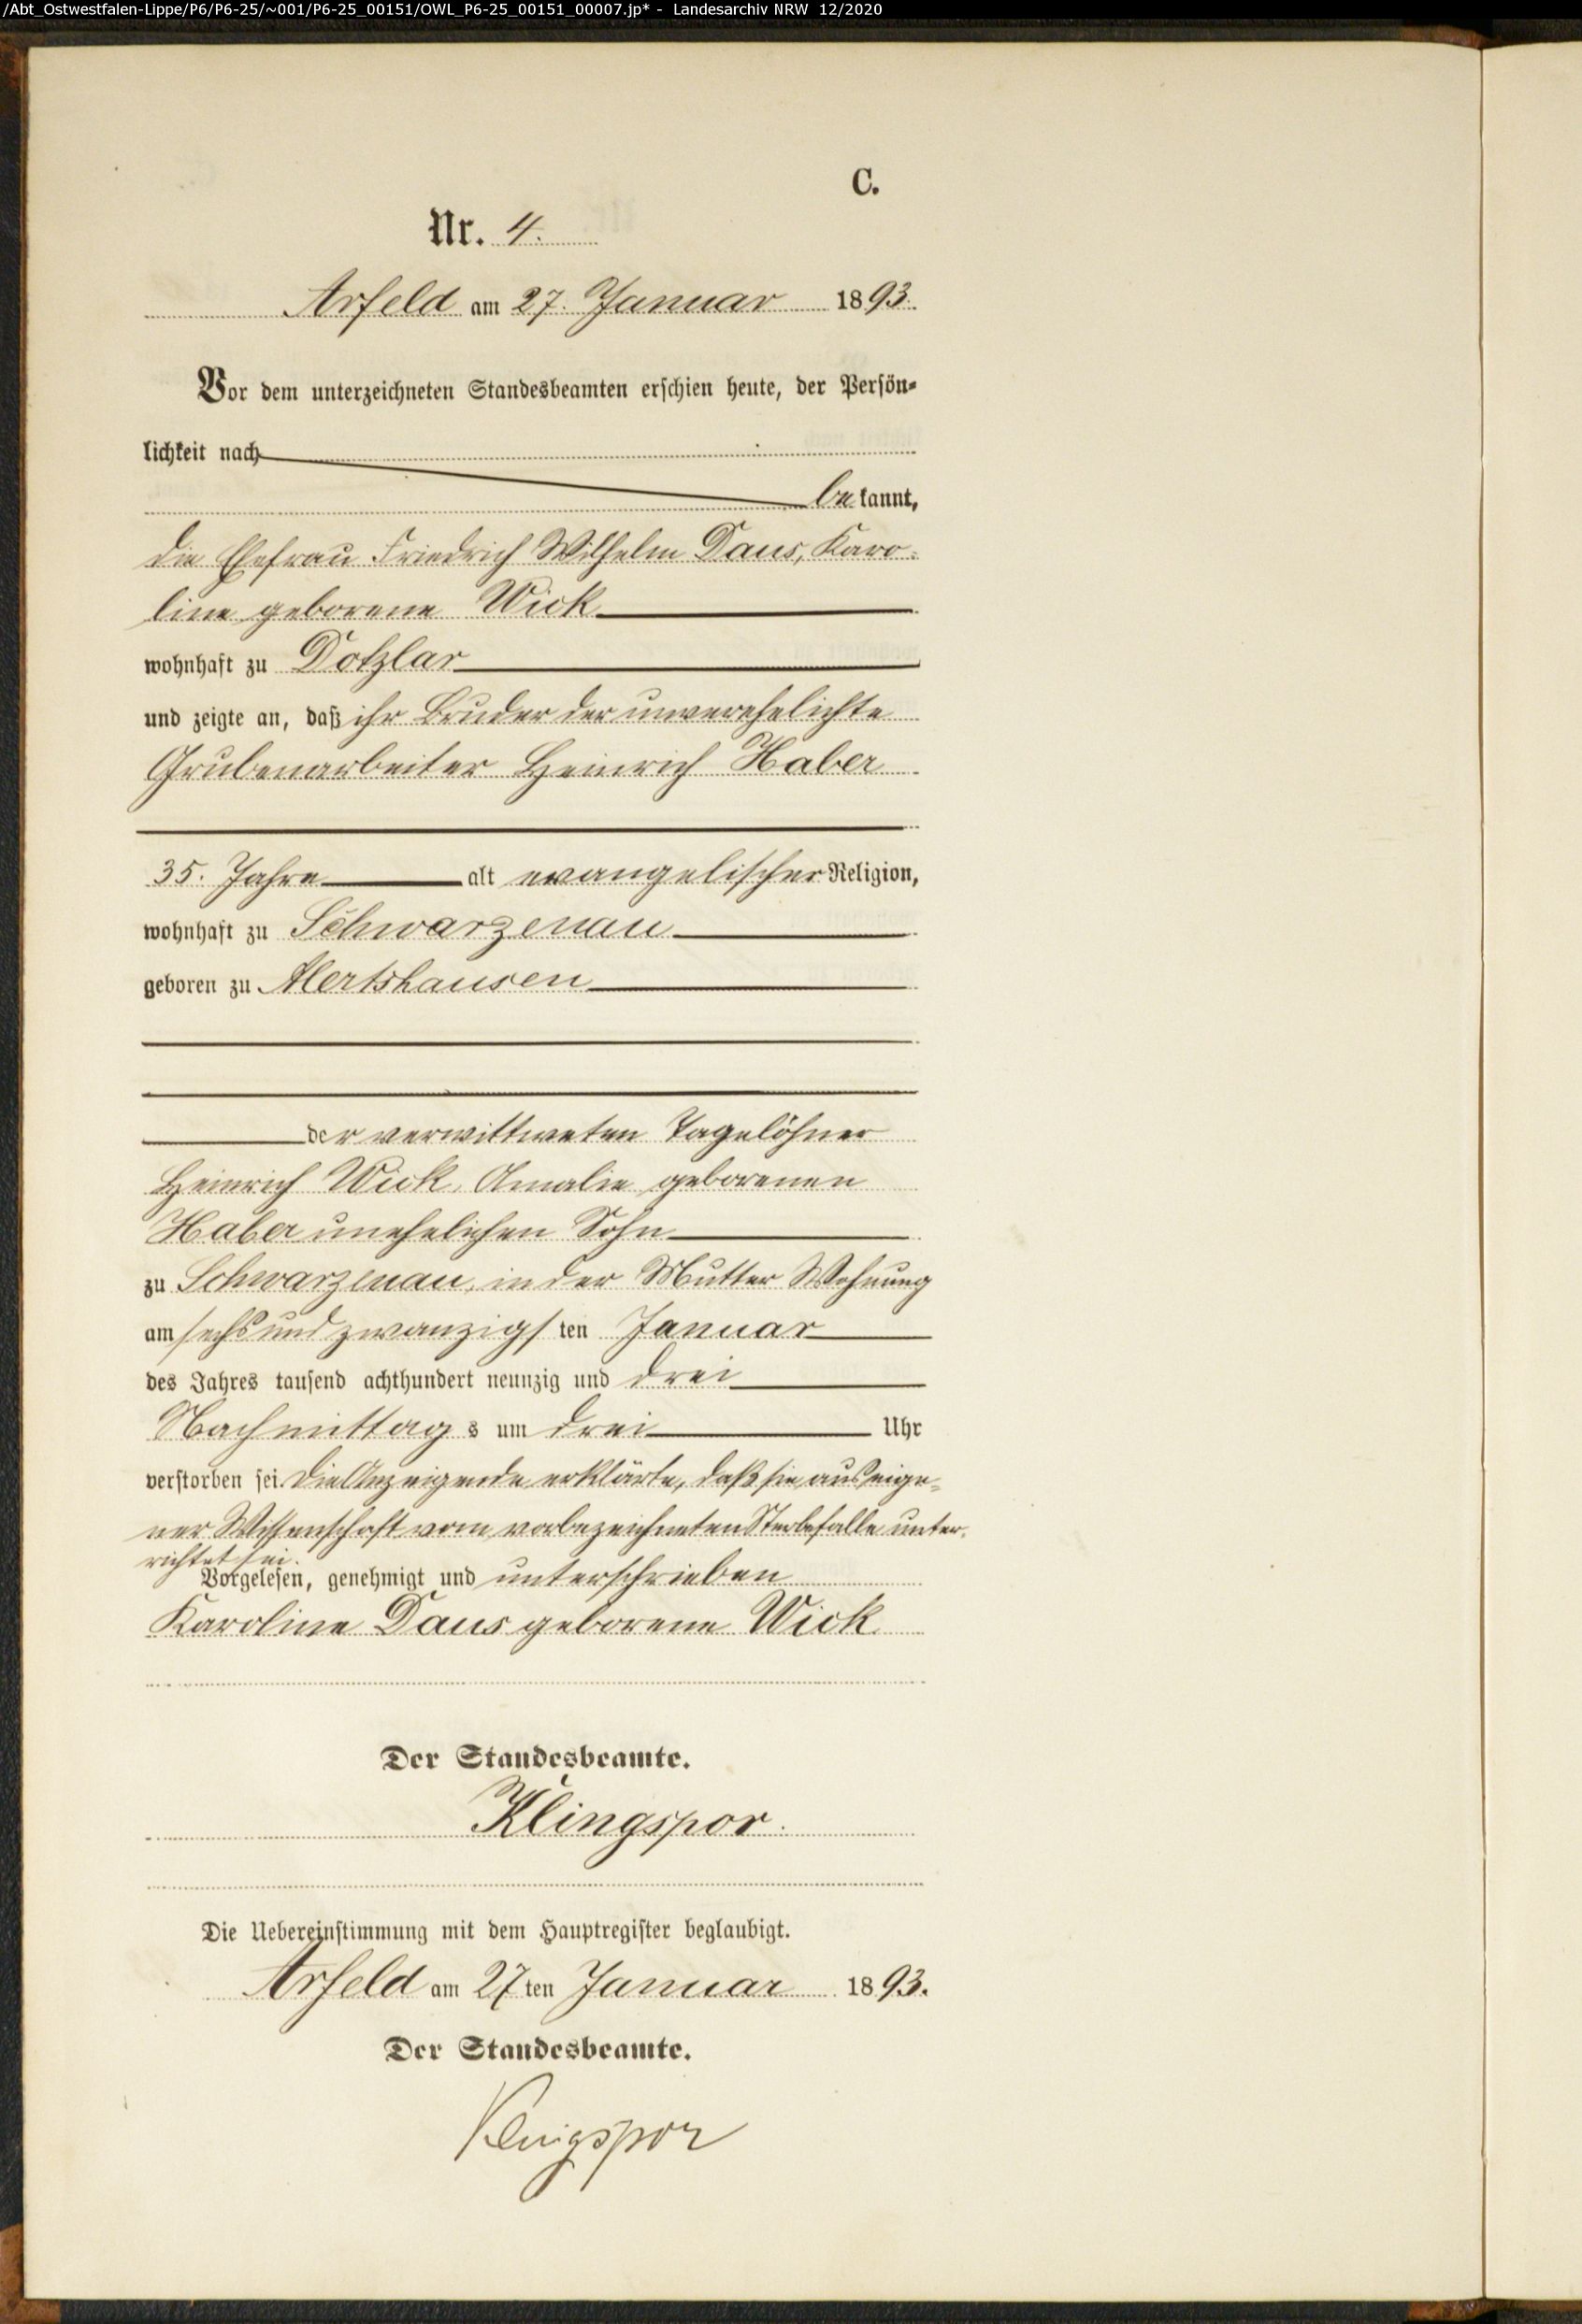 /Abt_Ostwestfalen-Lippe/P6/P6-25/~001/P6-25_00151/OWL_P6-25_00151_00007.jp* - Landesarchiv NRW 12/2020
C.
Nr. 4.
Arfeld am 27. Januar 1893.
Vor dem unterzeichneten Standesbeamten erschien heute, der Persön-
lichkeit nach
bekannt,
die Ehefrau Friedrich Wilhelm Daus, Karo-
line geborene Wick
wohnhaft zu Dotzlar
und zeigte an, daß ihr Bruder der unverehelichte
Grubenarbeiter Heinrich Haber
35. Jahre alt evangelischer Religion,
wohnhaft zu Schwarzenau
geboren zu Alertshausen
der verwittweten Tagelöhner
Heinrich Wick, Amalie geborenen
Haber unehelichen Sohn
zu Schwarzenau, in der Mutter Wohnung
am sechsundzwanzigsten Januar
des Jahres tausend achthundert neunzig und drei
Nachmittags um drei Uhr
verstorben sei. Die Anzeigende erklärte, daß sie aus eige-
ner Wissenschaft vom vorbezeichneten Sterbefalle unter-
richtet sei.
Vorgelesen, genehmigt und unterschrieben
Karoline Daus geborene Wick
Der Standesbeamte.
Klingspor.
Die Uebereinstimmung mit dem Hauptregister beglaubigt.
Arfeld am 27ten Januar 1893.
Der Standesbeamte.
Klingspor